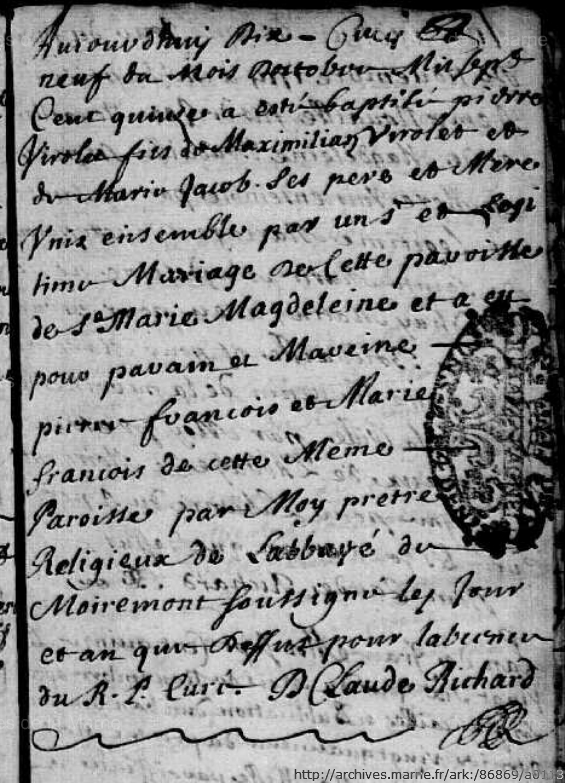 Aujourdhuy Dix -
neuf du Mois Doctobre Mil sept
Cent quinze a esté baptisé pierre
Virolet fils de Maximilian Virolet et
de Marie Jacob. Ses pere et Mere
Unis ensemble par un St et Legi
time Mariage De Cette paroisse
de Ste Marie Magdeleine et a eu
pour parain et Maraine
pierre francois et Marie
francois de cette Meme
Paroisse par Moy pretre
Religieux de Labbayé de
Moiremont soussigné les Jour
et an que Dessus pour labsence
du R. P. Curé. D Claude Richard
http://archives.marne.fr/ark:/86869/a0113